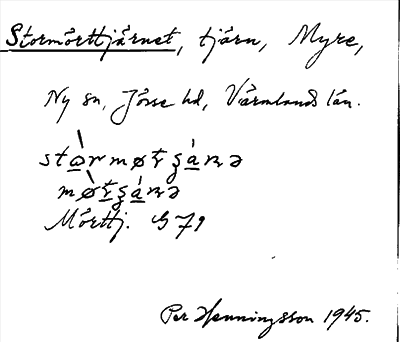 Stormörttjärnet, tjärn, Myre,
Ny sn, Jösse hd, Värmlands län.
Mörttj. G 79
Per Henningsson 1945.